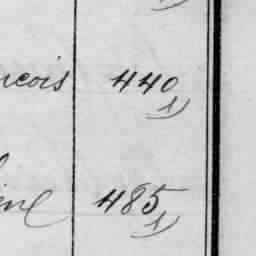 ncois 440 1)
ine 485 1)